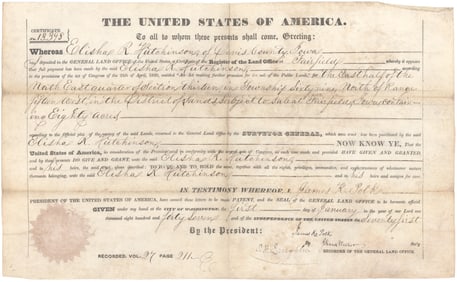 THE UNITED STATES OF AMERICA.
CERTIFICATE
To all to whom these presents shall come, Greeting:
Whereas Elisha R. Hutchinson of Davis County Iowa
deposited in the GENERAL LAND OFFICE of the United States, a Certificate of the Register of the Land Office at Fairfield whereby it appears
that full payment has been made by the said Elisha R. Hutchinson according to
the provisions of the Act of Congress of the 24th of April, 1820, entitled "An Act making further provision for the sale of the Public Lands," for the East half of the
North East quarter of Section thirteen in Township Sixty nine North of Range
fifteen West, in the District of Lands subject to sale at Fairfield Iowa contain-
ing Eighty acres
according to the official plat of the survey of the said Lands, returned to the General Land Office by the SURVEYOR GENERAL, which said tract has been purchased by the said
Elisha R. Hutchinson NOW KNOW YE, That the
United States of America, in consideration of the Premises, and in conformity with the several acts of Congress, in such case made and provided, HAVE GIVEN AND GRANTED,
and by these presents DO GIVE AND GRANT, unto the said Elisha R. Hutchinson
and to his heirs, the said tract above described: TO HAVE AND TO HOLD the same, together with all the rights, privileges, immunities, and appurtenances of whatsoever nature
thereunto belonging, unto the said Elisha R. Hutchinson and to his heirs and assigns forever.
IN TESTIMONY WHEREOF, I, James K. Polk
PRESIDENT OF THE UNITED STATES OF AMERICA, have caused these letters to be made PATENT, and the SEAL of the GENERAL LAND OFFICE to be hereunto affixed.
GIVEN under my hand at the CITY OF WASHINGTON, the first day of January in the year of our Lord one
thousand eight hundred and forty seven and of the INDEPENDENCE OF THE UNITED STATES the seventy first
By the President: James K. Polk
RECORDER OF THE GENERAL LAND OFFICE.
RECORDED, VOL. 27 PAGE 211